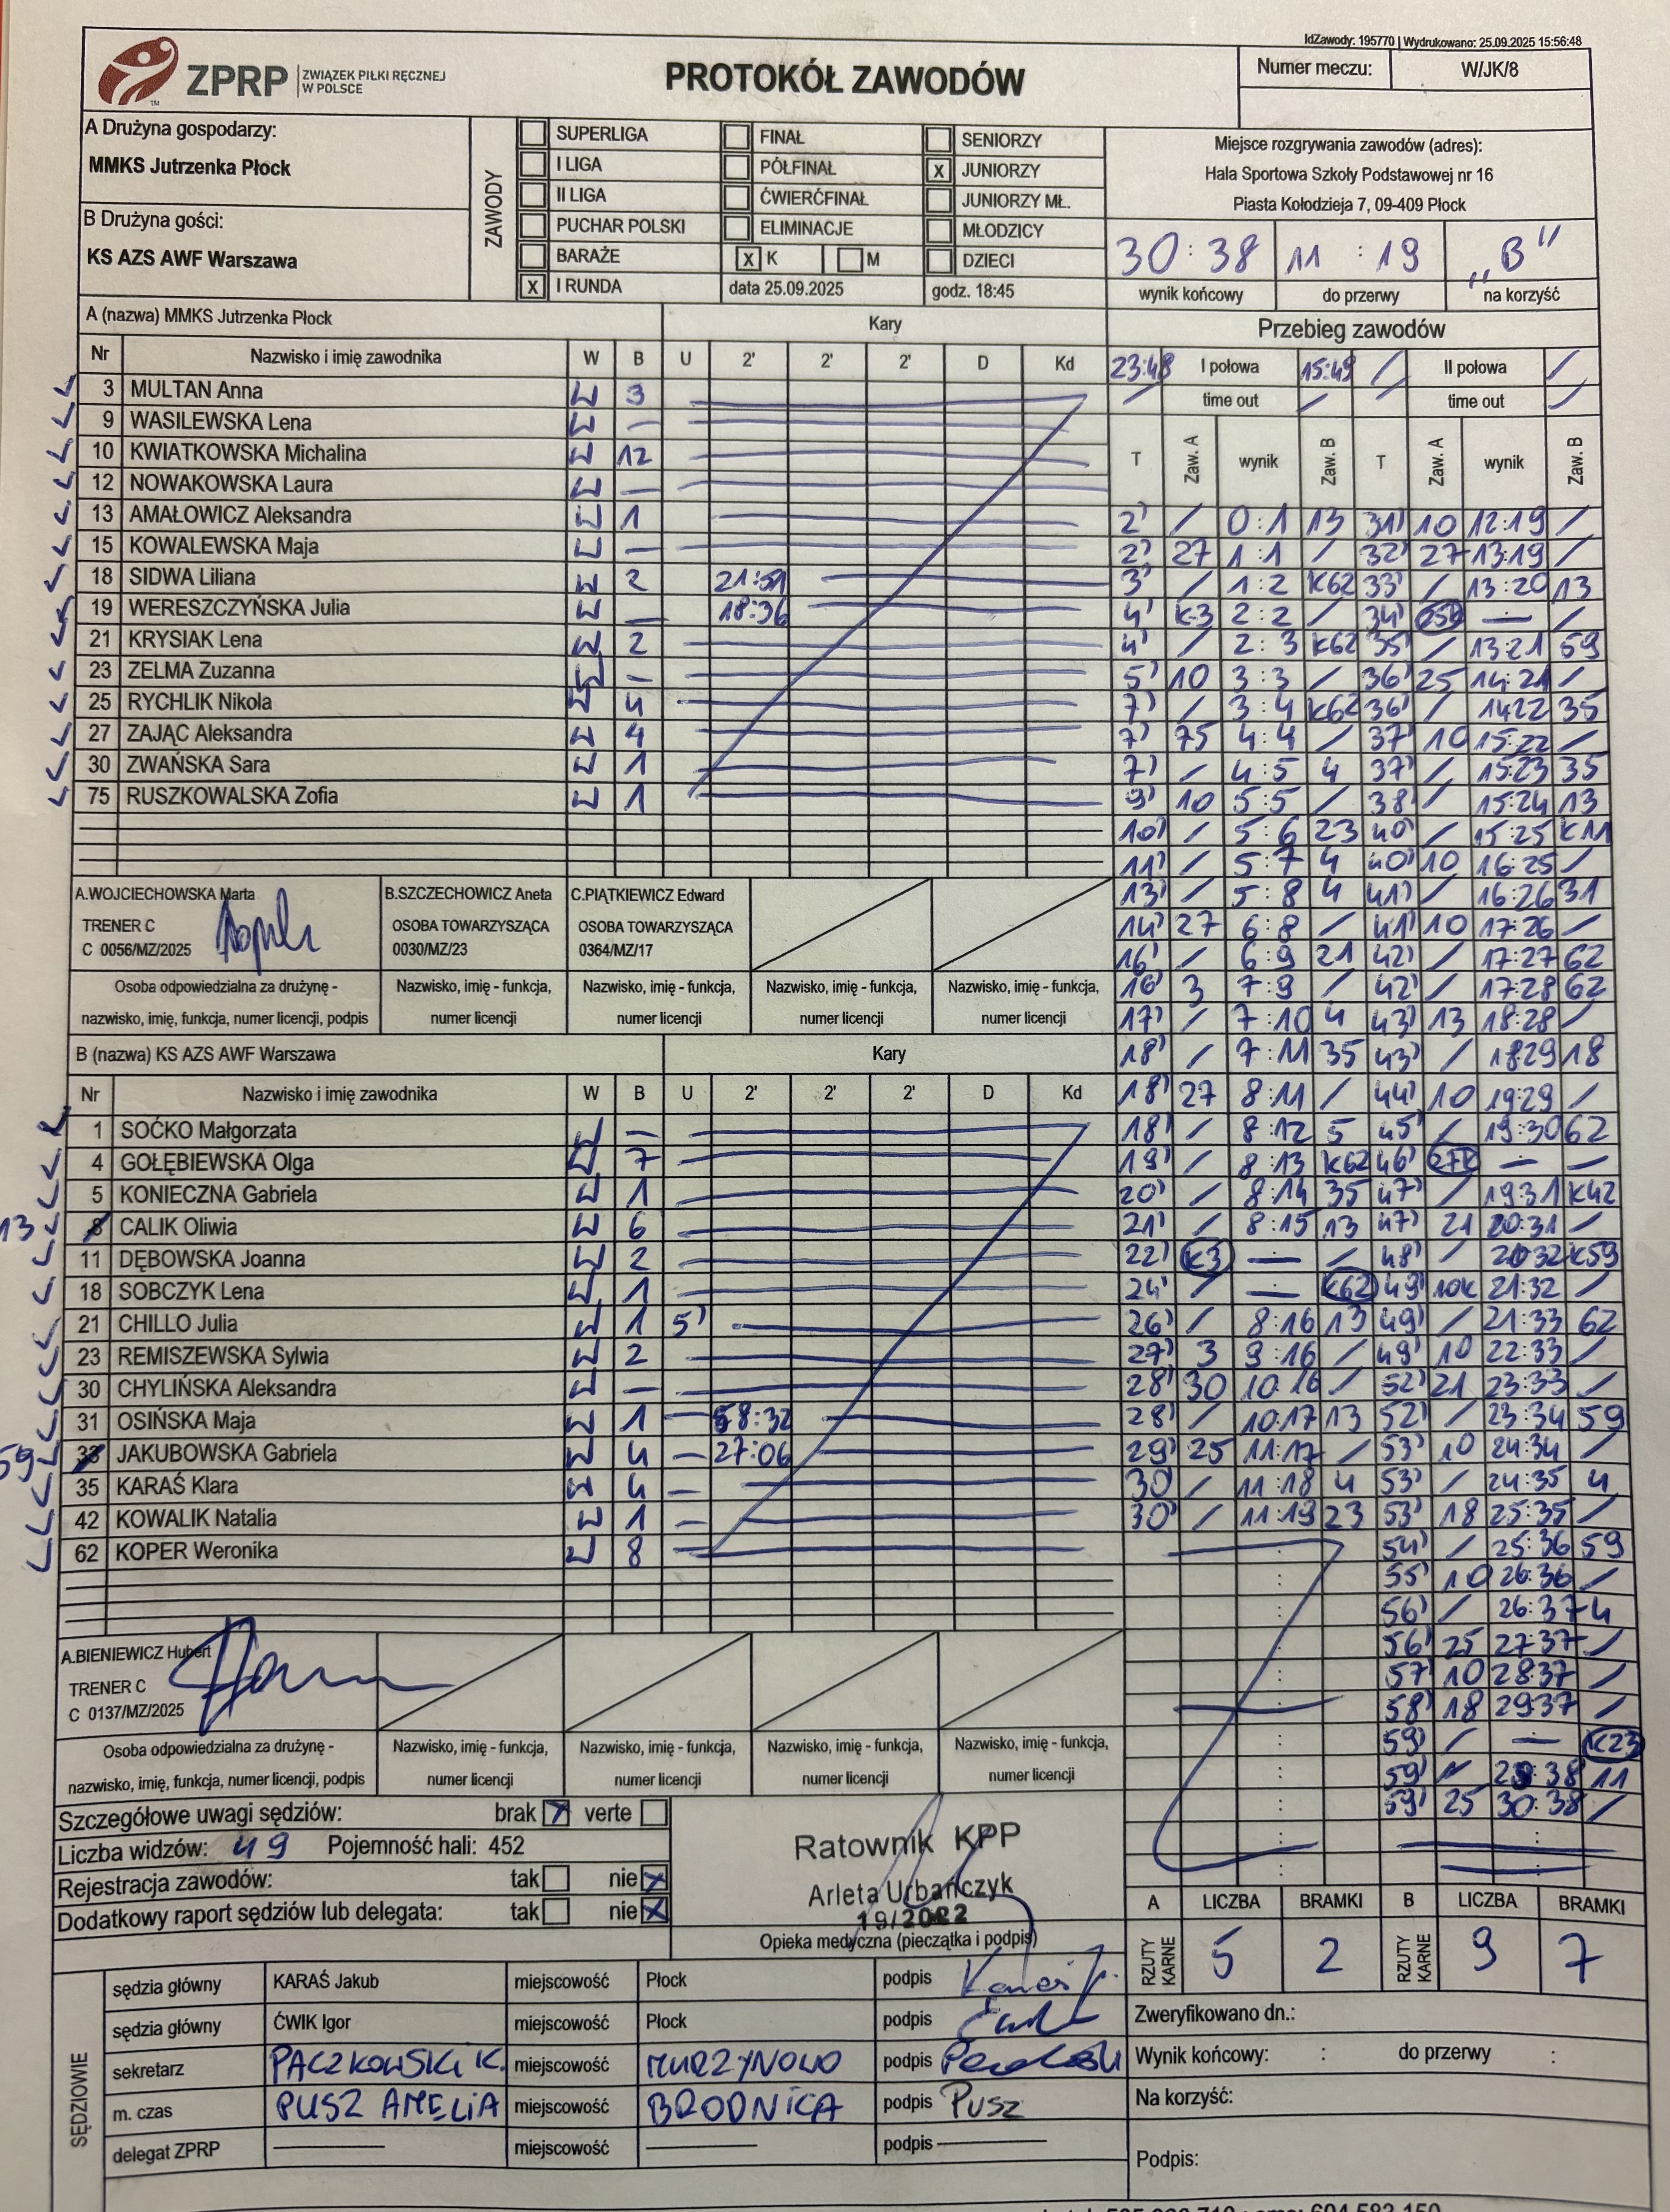 IdZawody: 195770 | Wydrukowano: 25.09.2025 15:56:48
ZPRP ZWIĄZEK PIŁKI RĘCZNEJ W POLSCE
PROTOKÓŁ ZAWODÓW
Numer meczu: W/JK/8
A Drużyna gospodarzy:
MMKS Jutrzenka Płock
B Drużyna gości:
KS AZS AWF Warszawa
ZAWODY
SUPERLIGA FINAŁ SENIORZY
I LIGA PÓŁFINAŁ X JUNIORZY
II LIGA ĆWIERĆFINAŁ JUNIORZY MŁ.
PUCHAR POLSKI ELIMINACJE MŁODZICY
BARAŻE X K M DZIECI
X I RUNDA data 25.09.2025 godz. 18:45
Miejsce rozgrywania zawodów (adres):
Hala Sportowa Szkoły Podstawowej nr 16
Piasta Kołodzieja 7, 09-409 Płock
30:38 11:19 „B"
wynik końcowy do przerwy na korzyść
A (nazwa) MMKS Jutrzenka Płock Kary
Nr Nazwisko i imię zawodnika W B U 2' 2' 2' D Kd
3 MULTAN Anna W 3
9 WASILEWSKA Lena W —
10 KWIATKOWSKA Michalina W 12
12 NOWAKOWSKA Laura W —
13 AMAŁOWICZ Aleksandra W 1
15 KOWALEWSKA Maja W —
18 SIDWA Liliana W 2 21:51
19 WERESZCZYŃSKA Julia W — 18:36
21 KRYSIAK Lena W 2
23 ZELMA Zuzanna W —
25 RYCHLIK Nikola W 4
27 ZAJĄC Aleksandra W 4
30 ZWAŃSKA Sara W 1
75 RUSZKOWALSKA Zofia W 1
A.WOJCIECHOWSKA Marta B.SZCZECHOWICZ Aneta C.PIĄTKIEWICZ Edward
TRENER C OSOBA TOWARZYSZĄCA OSOBA TOWARZYSZĄCA
C 0056/MZ/2025 0030/MZ/23 0364/MZ/17
Osoba odpowiedzialna za drużynę - Nazwisko, imię - funkcja, Nazwisko, imię - funkcja, Nazwisko, imię - funkcja, Nazwisko, imię - funkcja,
nazwisko, imię, funkcja, numer licencji, podpis numer licencji numer licencji numer licencji numer licencji
B (nazwa) KS AZS AWF Warszawa Kary
Nr Nazwisko i imię zawodnika W B U 2' 2' 2' D Kd
1 SOĆKO Małgorzata W —
4 GOŁĘBIEWSKA Olga W 7
5 KONIECZNA Gabriela W 1
13 8 CALIK Oliwia W 6
11 DĘBOWSKA Joanna W 2
18 SOBCZYK Lena W 1
21 CHILLO Julia W 1 5'
23 REMISZEWSKA Sylwia W 2
30 CHYLIŃSKA Aleksandra W —
31 OSIŃSKA Maja W 1 — 58:32
59 33 JAKUBOWSKA Gabriela W 4 — 27:06
35 KARAŚ Klara W 4 —
42 KOWALIK Natalia W 1 —
62 KOPER Weronika W 8
A.BIENIEWICZ Hubert
TRENER C
C 0137/MZ/2025
Osoba odpowiedzialna za drużynę - Nazwisko, imię - funkcja, Nazwisko, imię - funkcja, Nazwisko, imię - funkcja, Nazwisko, imię - funkcja,
nazwisko, imię, funkcja, numer licencji, podpis numer licencji numer licencji numer licencji numer licencji
Przebieg zawodów
23:48 I połowa 15:49 / II połowa /
/ time out / / time out /
T Zaw. A wynik Zaw. B T Zaw. A wynik Zaw. B
2' / 0:1 13 31' 10 12:19 /
2' 27 1:1 / 32' 27 13:19 /
3' / 1:2 K62 33' / 13:20 13
4' K3 2:2 / 34' 25K — /
4' / 2:3 K62 35' / 13:21 59
5' 10 3:3 / 36' 25 14:21 /
7' / 3:4 K62 36' / 14:22 35
7' 75 4:4 / 37' 10 15:22 /
7' / 4:5 4 37' / 15:23 35
9' 10 5:5 / 38' / 15:24 13
10' / 5:6 23 40' / 15:25 K11
11' / 5:7 4 40' 10 16:25 /
13' / 5:8 4 41' / 16:26 31
14' 27 6:8 / 41' 10 17:26 /
16' / 6:9 21 42' / 17:27 62
16' 3 7:9 / 42' / 17:28 62
17' / 7:10 4 43' 13 18:28 /
18' / 7:11 35 43' / 18:29 18
18' 27 8:11 / 44' 10 19:29 /
18' / 8:12 5 45' / 19:30 62
19' / 8:13 K62 46' 27K — —
20' / 8:14 35 47' / 19:31 K42
21' / 8:15 13 47' 21 20:31 /
22' K3 — / 48' / 20:32 K59
24' / — K62 49' 10K 21:32 /
26' / 8:16 13 49' / 21:33 62
27' 3 9:16 / 49' 10 22:33 /
28' 30 10:16 / 52' 21 23:33 /
28' / 10:17 13 52' / 23:34 59
29' 25 11:17 / 53' 10 24:34 /
30' / 11:18 4 53' / 24:35 4
30' / 11:19 23 53' 18 25:35 /
54' / 25:36 59
55' 10 26:36 /
56' / 26:37 4
56' 25 27:37 /
57' 10 28:37 /
58' 18 29:37 /
59' / — K23
59' / 29:38 11
59' 25 30:38 /
A LICZBA BRAMKI B LICZBA BRAMKI
RZUTY KARNE 5 2 RZUTY KARNE 9 7
Szczegółowe uwagi sędziów: brak X verte
Liczba widzów: 49 Pojemność hali: 452
Rejestracja zawodów: tak nie X
Dodatkowy raport sędziów lub delegata: tak nie X
Ratownik KPP
Arleta Urbańczyk
19/2022
Opieka medyczna (pieczątka i podpis)
SĘDZIOWIE
sędzia główny KARAŚ Jakub miejscowość Płock podpis
sędzia główny ĆWIK Igor miejscowość Płock podpis
sekretarz PACZKOWSKI K. miejscowość MURZYNOWO podpis
m. czas PUSZ AMELIA miejscowość BRODNICA podpis Pusz
delegat ZPRP — miejscowość — podpis —
Zweryfikowano dn.:
Wynik końcowy: : do przerwy :
Na korzyść:
Podpis: